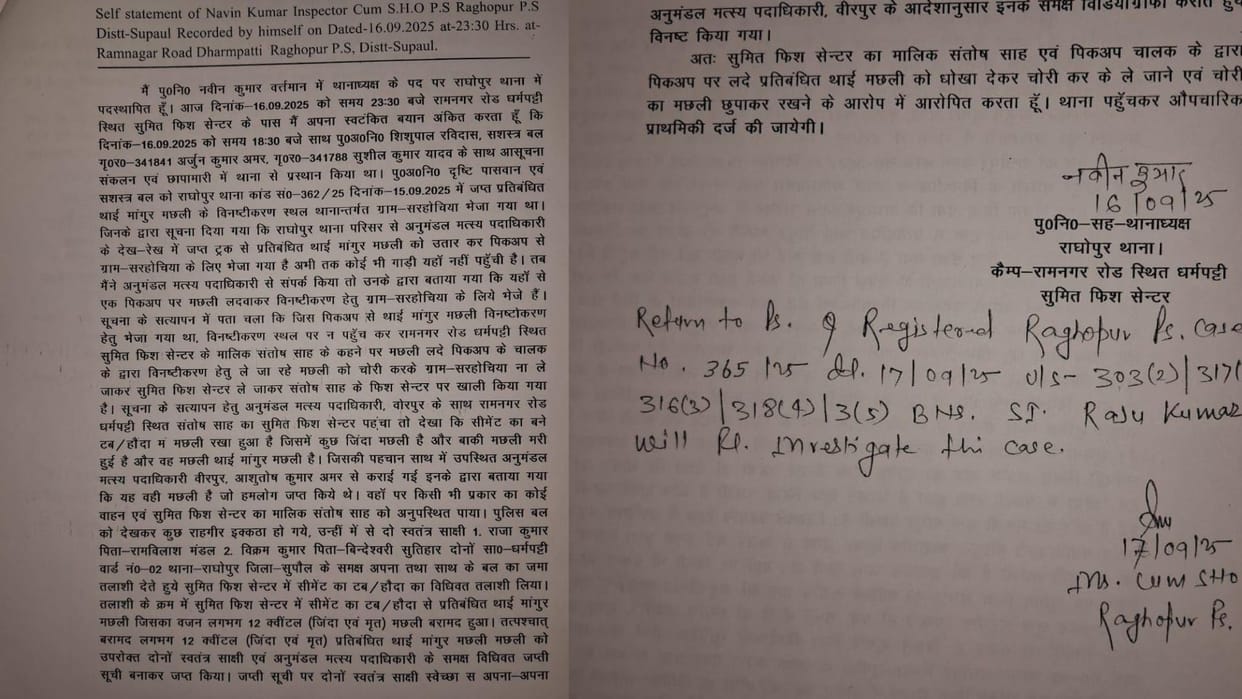 Self statement of Navin Kumar Inspector Cum S.H.O P.S Raghopur P.S
Distt-Supaul Recorded by himself on Dated-16.09.2025 at-23:30 Hrs. at-
Ramnagar Road Dharmpatti Raghopur P.S, Distt-Supaul.
मैं पु०नि० नवीन कुमार वर्तमान में थानाध्यक्ष के पद पर राघोपुर थाना में
पदस्थापित हूँ। आज दिनांक-16.09.2025 को समय 23:30 बजे रामनगर रोड धर्मपट्टी
स्थित सुमित फिश सेन्टर के पास मैं अपना स्वटंकित बयान अंकित करता हूँ कि
दिनांक-16.09.2025 को समय 18:30 बजे साथ पु०अ०नि० शिशुपाल रविदास, सशस्त्र बल
गृ०र०-341841 अर्जुन कुमार अमर, गृ०र०-341788 सुशील कुमार यादव के साथ आसूचना
संकलन एवं छापामारी में थाना से प्रस्थान किया था। पु०अ०नि० दृष्टि पासवान एवं
सशस्त्र बल को राघोपुर थाना कांड सं०-362/25 दिनांक-15.09.2025 में जप्त प्रतिबंधित
थाई मांगुर मछली के विनष्टीकरण स्थल थानान्तर्गत ग्राम-सरहोचिया भेजा गया था।
जिनके द्वारा सूचना दिया गया कि राघोपुर थाना परिसर से अनुमंडल मत्स्य पदाधिकारी
के देख-रेख में जप्त ट्रक से प्रतिबंधित थाई मांगुर मछली को उतार कर पिकअप से
ग्राम-सरहोचिया के लिए भेजा गया है अभी तक कोई भी गाड़ी यहाँ नहीं पहुँची है। तब
मैंने अनुमंडल मत्स्य पदाधिकारी से संपर्क किया तो उनके द्वारा बताया गया कि यहाँ से
एक पिकअप पर मछली लदवाकर विनष्टीकरण हेतु ग्राम-सरहोचिया के लिये भेजे हैं।
सूचना के सत्यापन में पता चला कि जिस पिकअप से थाई मांगुर मछली विनष्टीकरण
हेतु भेजा गया था, विनष्टीकरण स्थल पर न पहुँच कर रामनगर रोड धर्मपट्टी स्थित
सुमित फिश सेन्टर के मालिक संतोष साह के कहने पर मछली लदे पिकअप के चालक
के द्वारा विनष्टीकरण हेतु ले जा रहे मछली को चोरी करके ग्राम-सरहोचिया ना ले
जाकर सुमित फिश सेन्टर ले जाकर संतोष साह के फिश सेन्टर पर खाली किया गया
है। सूचना के सत्यापन हेतु अनुमंडल मत्स्य पदाधिकारी, वोरपुर के साथ रामनगर रोड
धर्मपट्टी स्थित संतोष साह का सुमित फिश सेन्टर पहुंचा तो देखा कि सीमेंट का बने
टब/हौदा मं मछली रखा हुआ है जिसमें कुछ जिंदा मछली है और बाकी मछली मरी
हुई है और वह मछली थाई मांगुर मछली है। जिसकी पहचान साथ में उपस्थित अनुमंडल
मत्स्य पदाधिकारी वीरपुर, आशुतोष कुमार अमर से कराई गई इनके द्वारा बताया गया
कि यह वही मछली है जो हमलोग जप्त किये थे। वहाँ पर किसी भी प्रकार का कोई
वाहन एवं सुमित फिश सेन्टर का मालिक संतोष साह को अनुपस्थित पाया। पुलिस बल
को देखकर कुछ राहगीर इक्कठा हो गये, उन्हीं में से दो स्वतंत्र साक्षी 1. राजा कुमार
पिता-रामविलाश मंडल 2. विक्रम कुमार पिता-बिन्देश्वरी सुतिहार दोनों सा०-धर्मपट्टी
वार्ड नं०-02 थाना-राघोपुर जिला-सुपौल के समक्ष अपना तथा साथ के बल का जमा
तलाशी देते हुये सुमित फिश सेन्टर में सीमेंट का टब/हौदा का विधिवत तलाशी लिया।
तलाशी के क्रम में सुमित फिश सेन्टर में सीमेंट का टब/हौदा से प्रतिबंधित थाई मांगुर
मछली जिसका वजन लगभग 12 क्वींटल (जिंदा एवं मृत) मछली बरामद हुआ। तत्पश्चात्
बरामद लगभग 12 क्वींटल (जिंदा एवं मृत) प्रतिबंधित थाई मांगुर मछली मछली को
उपरोक्त दोनों स्वतंत्र साक्षी एवं अनुमंडल मत्स्य पदाधिकारी के समक्ष विधिवत जप्ती
सूची बनाकर जप्त किया। जप्ती सूची पर दोनों स्वतंत्र साक्षी स्वेच्छा स अपना-अपना
अनुमंडल मत्स्य पदाधिकारी, वीरपुर के आदेशानुसार इनके समक्ष विडियोग्राफी कराते हुए
विनष्ट किया गया।
अतः सुमित फिश सेन्टर का मालिक संतोष साह एवं पिकअप चालक के द्वारा
पिकअप पर लदे प्रतिबंधित थाई मछली को धोखा देकर चोरी कर के ले जाने एवं चोरी
का मछली छुपाकर रखने के आरोप में आरोपित करता हूँ। थाना पहुँचकर औपचारिक
प्राथमिकी दर्ज की जायेगी।
नवीन कुमार
16/09/25
पु०नि०-सह-थानाध्यक्ष
राघोपुर थाना।
कैम्प-रामनगर रोड स्थित धर्मपट्टी
सुमित फिश सेन्टर
Return to Ps. & Registered Raghopur Ps. Case
No. 365/25 dt. 17/09/25 U/S- 303(2)/317(
316(3)/318(4)/3(5) BNS. SI. Raju Kumar
will Pl. Investigate this case.
17/09/25
Ins. cum SHO
Raghopur Ps.